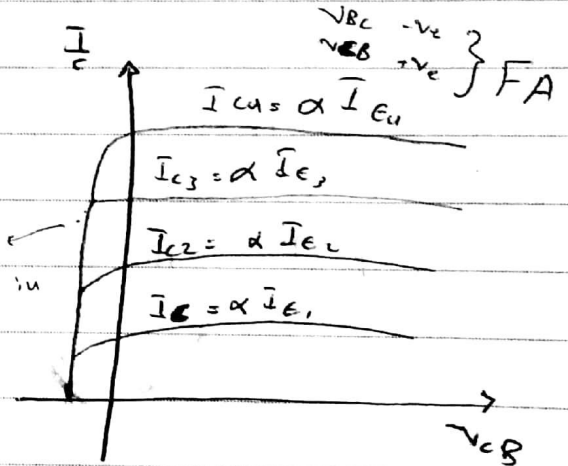 I_C
V_BC -ve
V_CB +ve } FA
I_C4 = α I_E4
I_C3 = α I_E3
I_C2 = α I_E2
I_C = α I_E1
V_CB